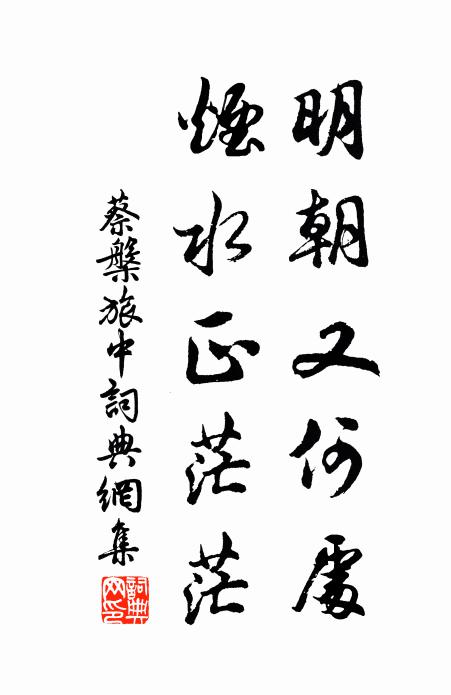 明朝又何處
煙水正茫茫
蔡槃旅中詞典網集
詞典網印